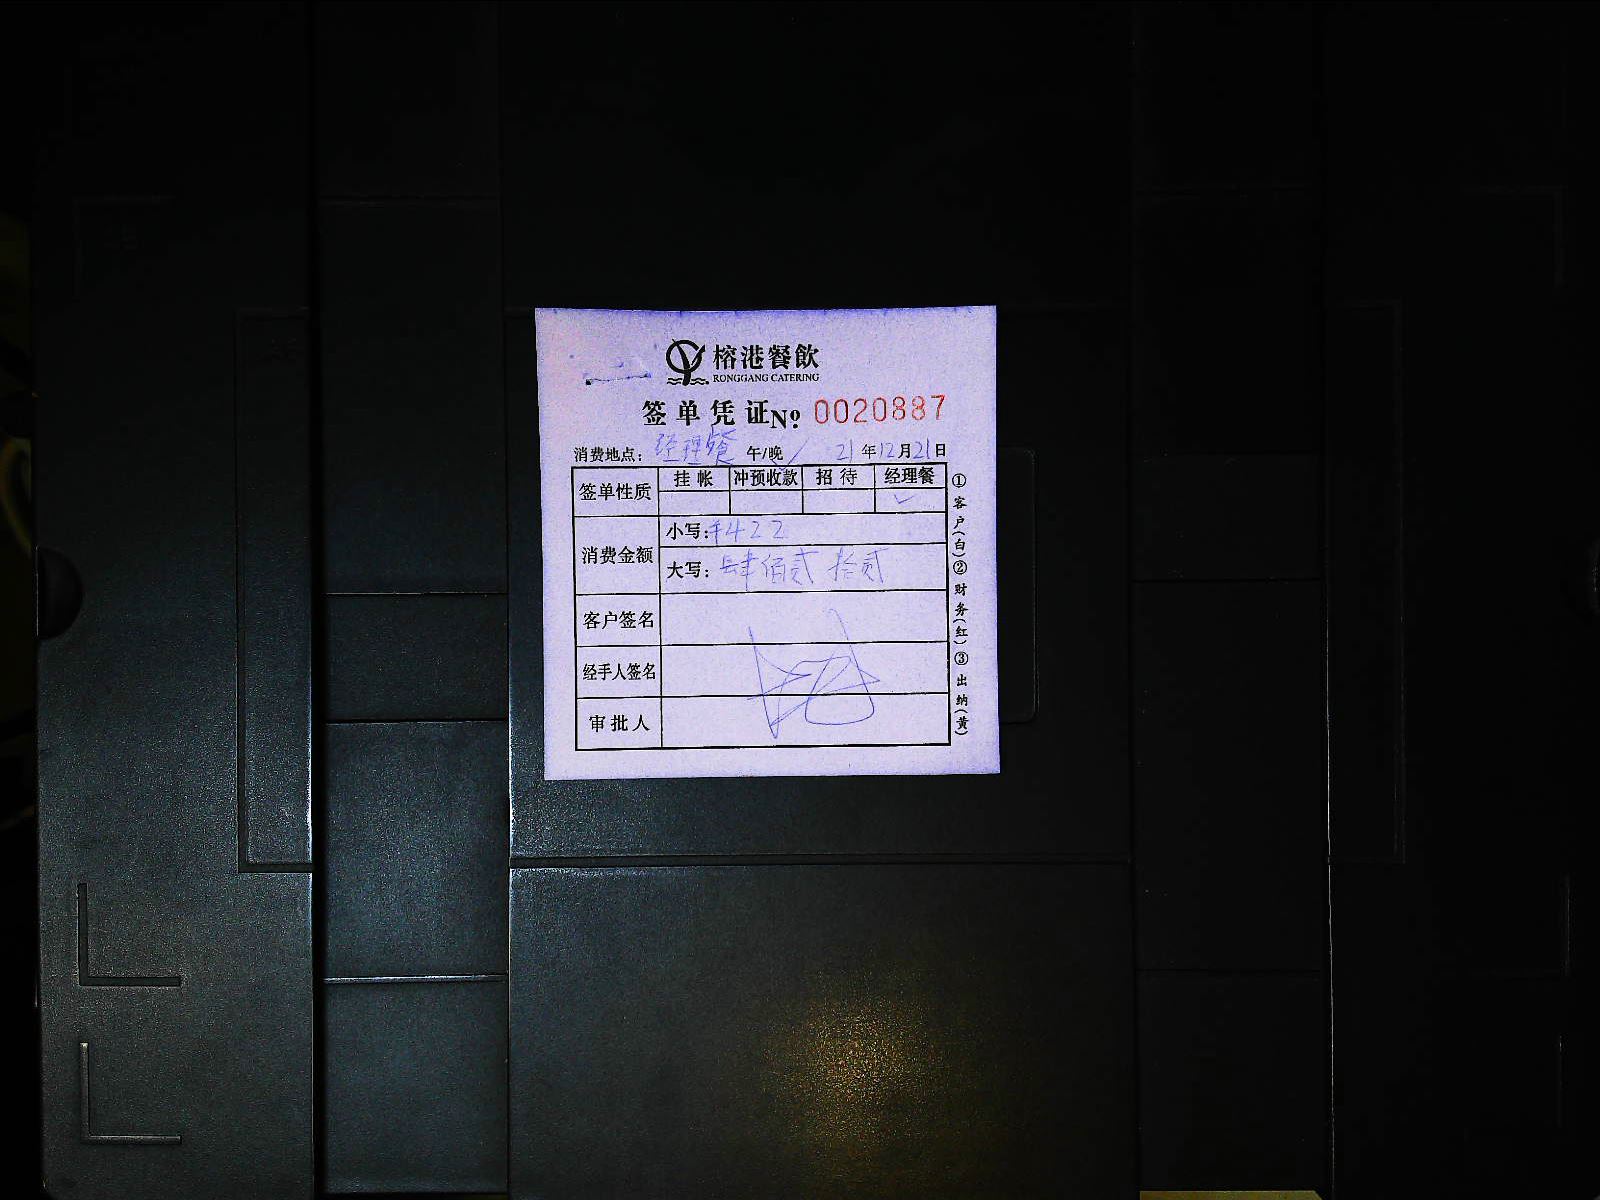 榕港餐飲
RONGGANG CATERING
签单凭证 № 0020887
消费地点：经理餐 午/晚 21年12月21日
签单性质 挂帐 冲预收款 招待 经理餐
✓
消费金额 小写：¥422
大写：肆佰贰拾贰
客户签名
经手人签名
审批人
①客户(白)②财务(红)③出纳(黄)